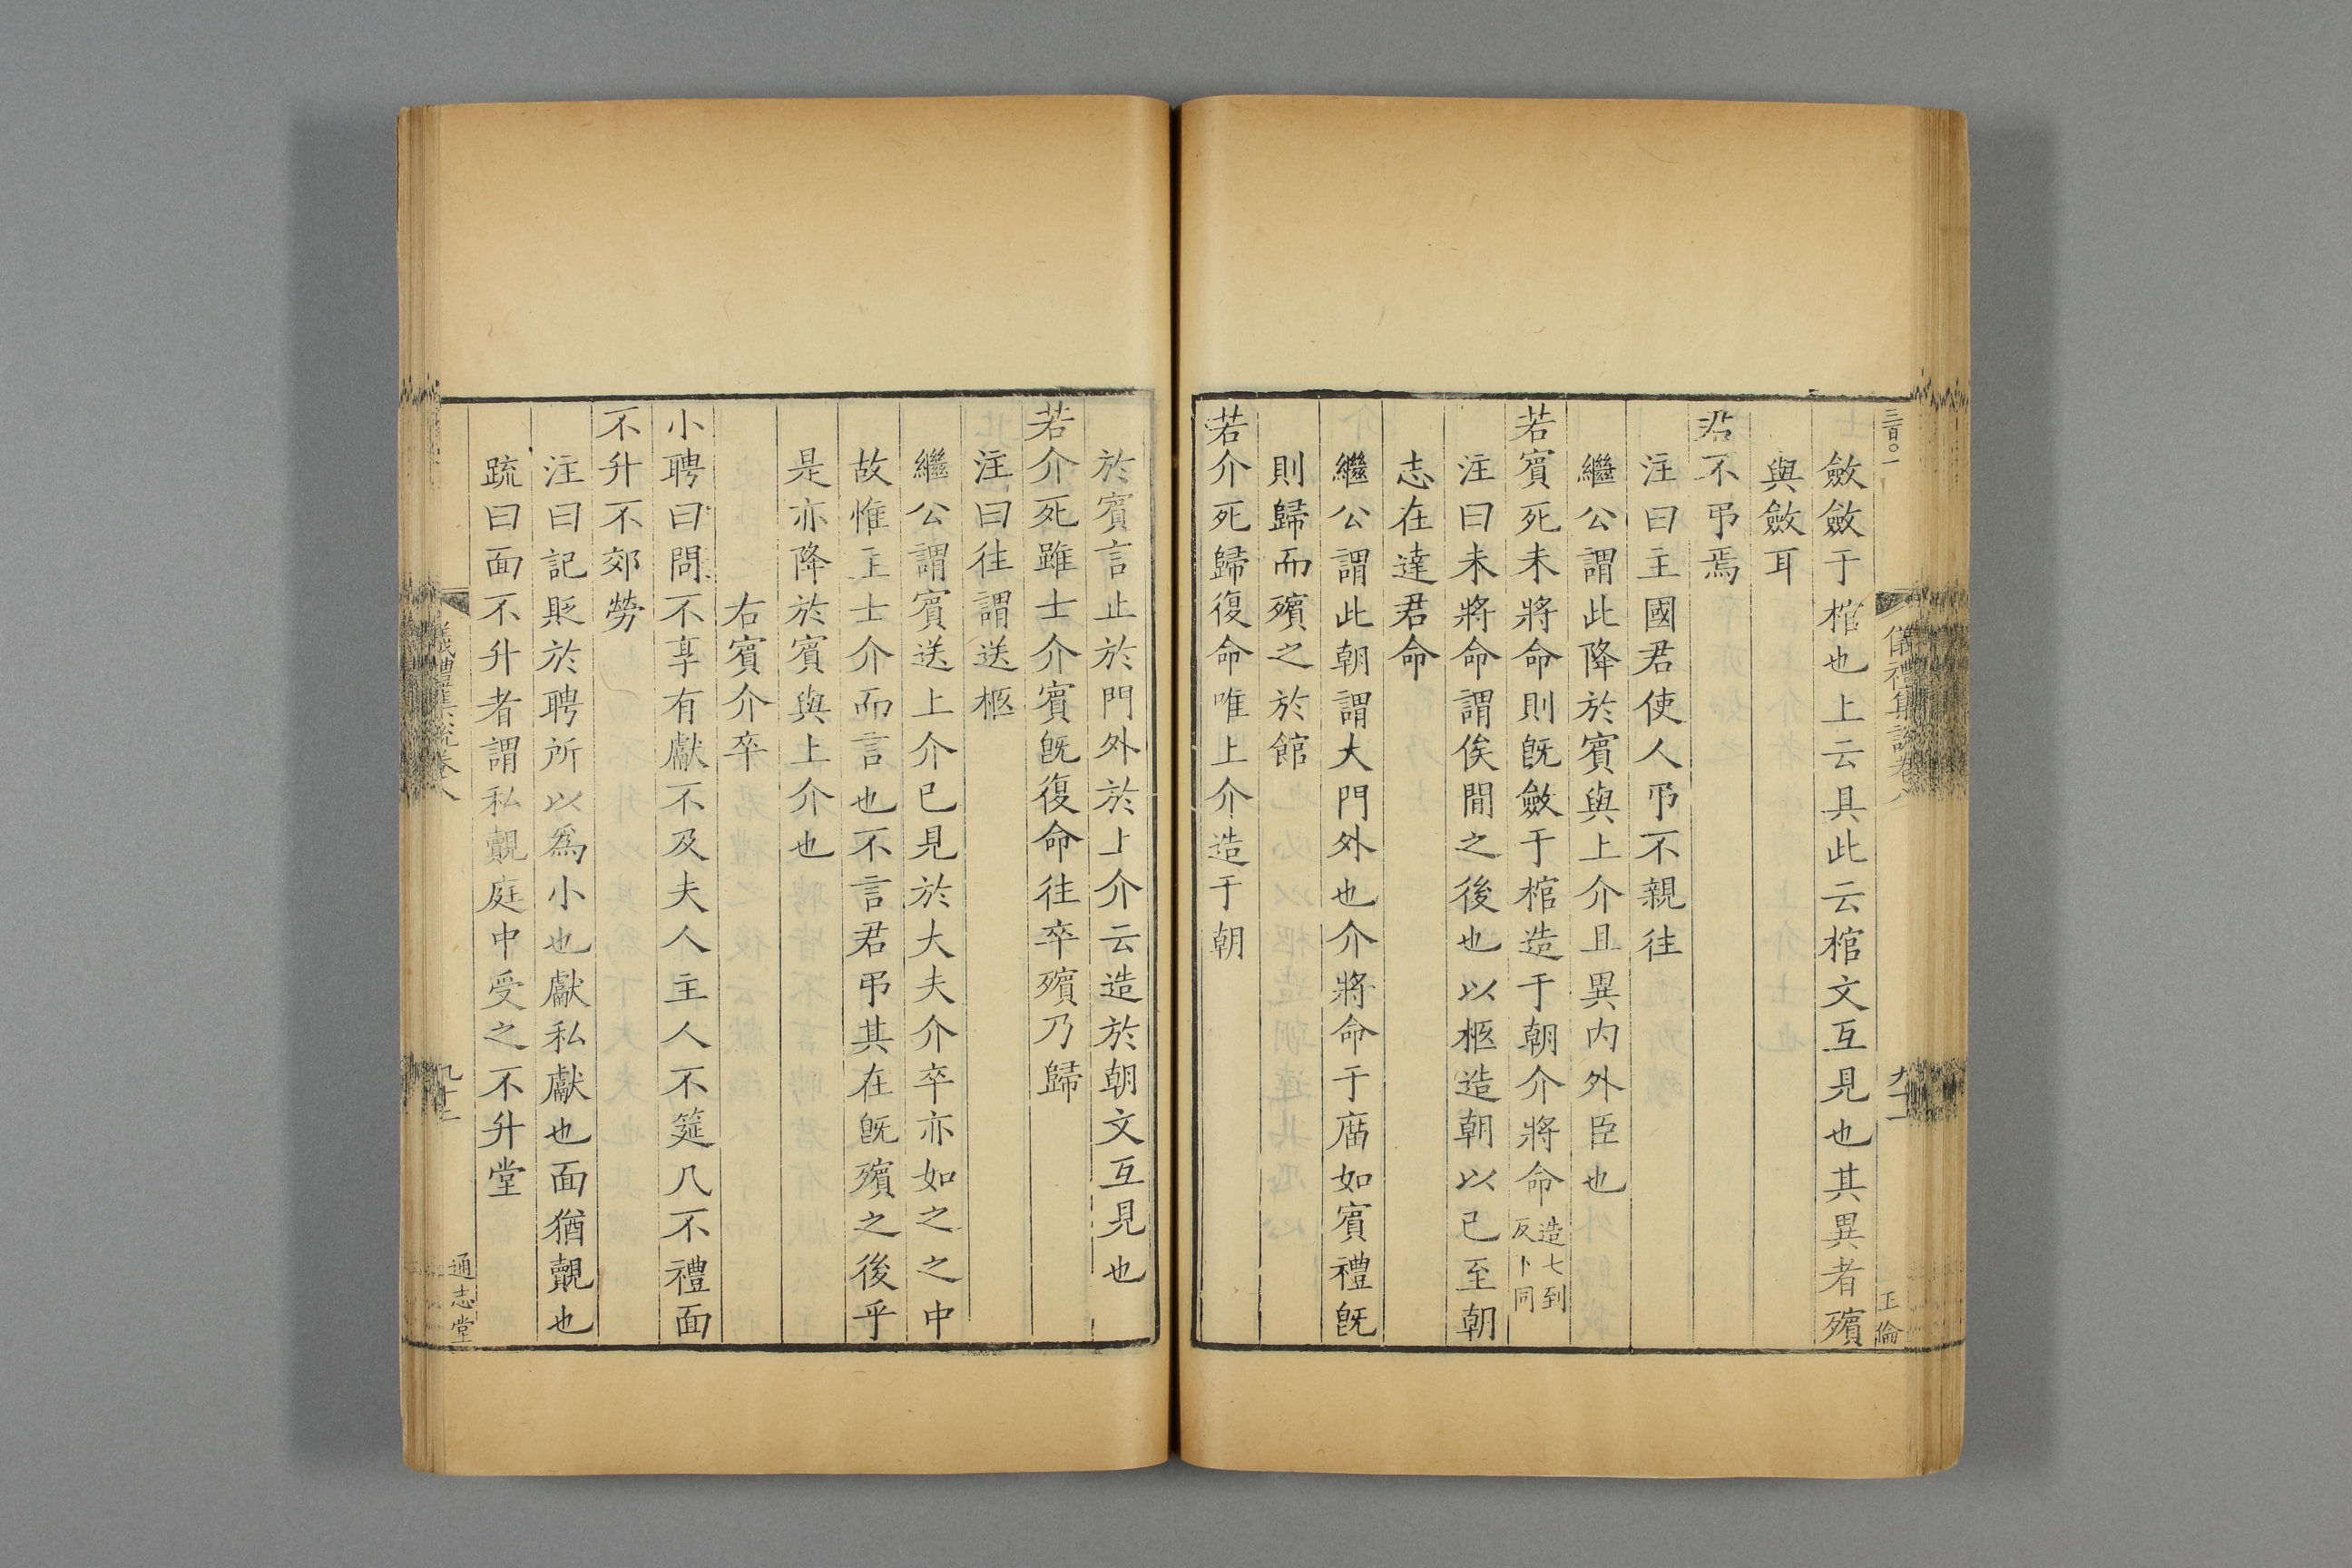 三百〇一
儀禮集說卷八
九十一
正倫
斂斂于棺也上云具此云棺文互見也其異者殯
與斂耳
君不弔焉
注曰主國君使人弔不親往
繼公謂此降於賓與上介且異內外臣也
若賓死未將命則既斂于棺造于朝介將命造七到反卜同
注曰未將命謂俟閒之後也以柩造朝以已至朝
志在達君命
繼公謂此朝謂大門外也介將命于廟如賓禮既
則歸而殯之於館
若介死歸復命唯上介造于朝
於賓言止於門外於上介云造於朝文互見也
若介死雖士介賓既復命往卒殯乃歸
注曰往謂送柩
繼公謂賓送上介已見於大夫介卒亦如之之中
故惟主士介而言也不言君弔其在既殯之後乎
是亦降於賓與上介也
右賓介卒
小聘曰問不享有獻不及夫人主人不筵几不禮面
不升不郊勞
注曰記貶於聘所以為小也獻私獻也面猶覿也
疏曰面不升者謂私覿庭中受之不升堂
儀禮集說卷八
九十二
通志堂